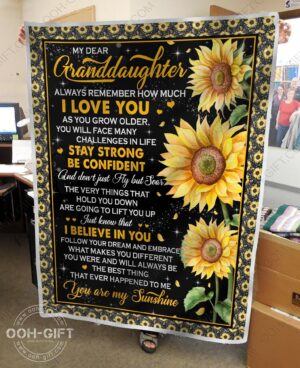 MY DEAR
Granddaughter
ALWAYS REMEMBER HOW MUCH
I LOVE YOU
AS YOU GROW OLDER,
YOU WILL FACE MANY
CHALLENGES IN LIFE
STAY STRONG
BE CONFIDENT
And don't just Fly but Soar
THE VERY THINGS THAT
HOLD YOU DOWN
ARE GOING TO LIFT YOU UP
Just know that
I BELIEVE IN YOU
FOLLOW YOUR DREAM AND EMBRACE
WHAT MAKES YOU DIFFERENT
YOU WERE AND WILL ALWAYS BE
THE BEST THING
THAT EVER HAPPENED TO ME
You are my Sunshine
OOH-GIFT